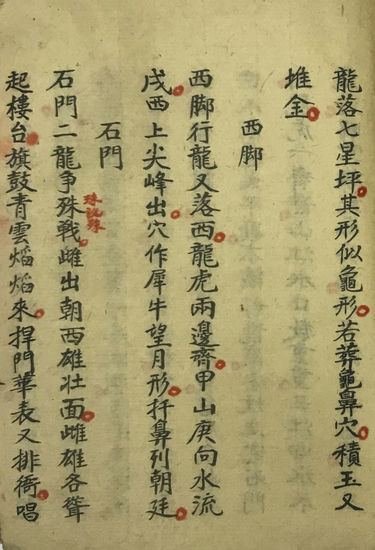 龍落七星坪其形似龜形若葬龜鼻穴積玉又
堆金
西脚
西脚行龍又落西龍虎兩邊齊甲山庚向水流
戌西上尖峰出穴作犀牛望月形扦鼻列朝廷
石門
石門二龍争殊戟雌出朝西雄壮面雌雄各聳
珠訛殊
起樓台旗鼓青雲焰焰來捍門華表又排衙唱